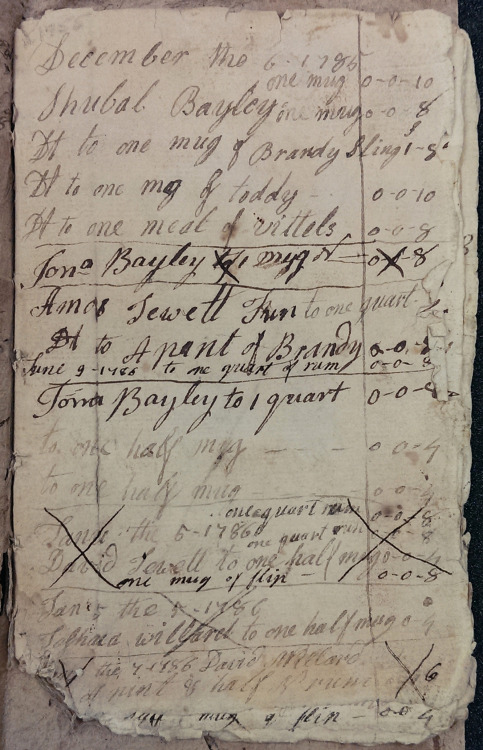 December the 6-1786
one mug 0-0-10
Shubal Bayley one mug 0-0-8
Dt to one mug of Brandy Sling 1-8
Dt to one mg of toddy - 0-0-10
Dt to one meal of vittels 0-0-8
Jona Bayley to 1 mug of 0-0-8
Amos Jewett Jun to one quart
Dt to A pant of Brandy 0-0-
June 9-1786 to one quart of rum 0-0-
Jona Bayley to 1 quart 0-0-
to one half mug - - - 0-0-4
to one half mug 0-0-
one quart rum 0-0-8
Jany the 5-1786 one quart rum 0-8
David Jewell to one half mug 0-0-4
one mug of flip - 0-0-8
Jany the 5-1786
willard to one half mug 0 4
the 7-1786 David Willard
pint & half 6
half mug of flip - 0-0 4